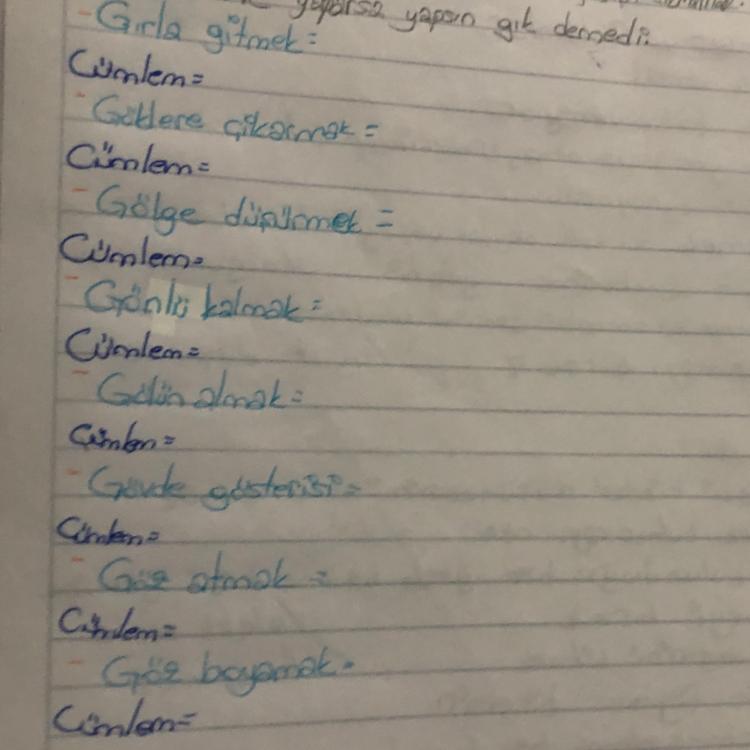 yaparsa yapsın gık demedi.
- Gırla gitmek =
Cümlem =
- Göklere çıkarmak =
Cümlem =
- Gölge düşürmek =
Cümlem =
- Gönlü kalmak =
Cümlem =
- Gönlün almak =
Cümlem =
- Gövde gösterisi =
Cümlem =
- Göz atmak =
Cümlem =
- Göz boyamak =
Cümlem =